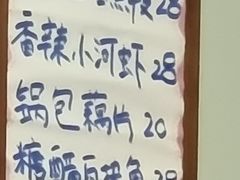 28
香辣小河虾28
锅包藕片20
糖醋 鱼28